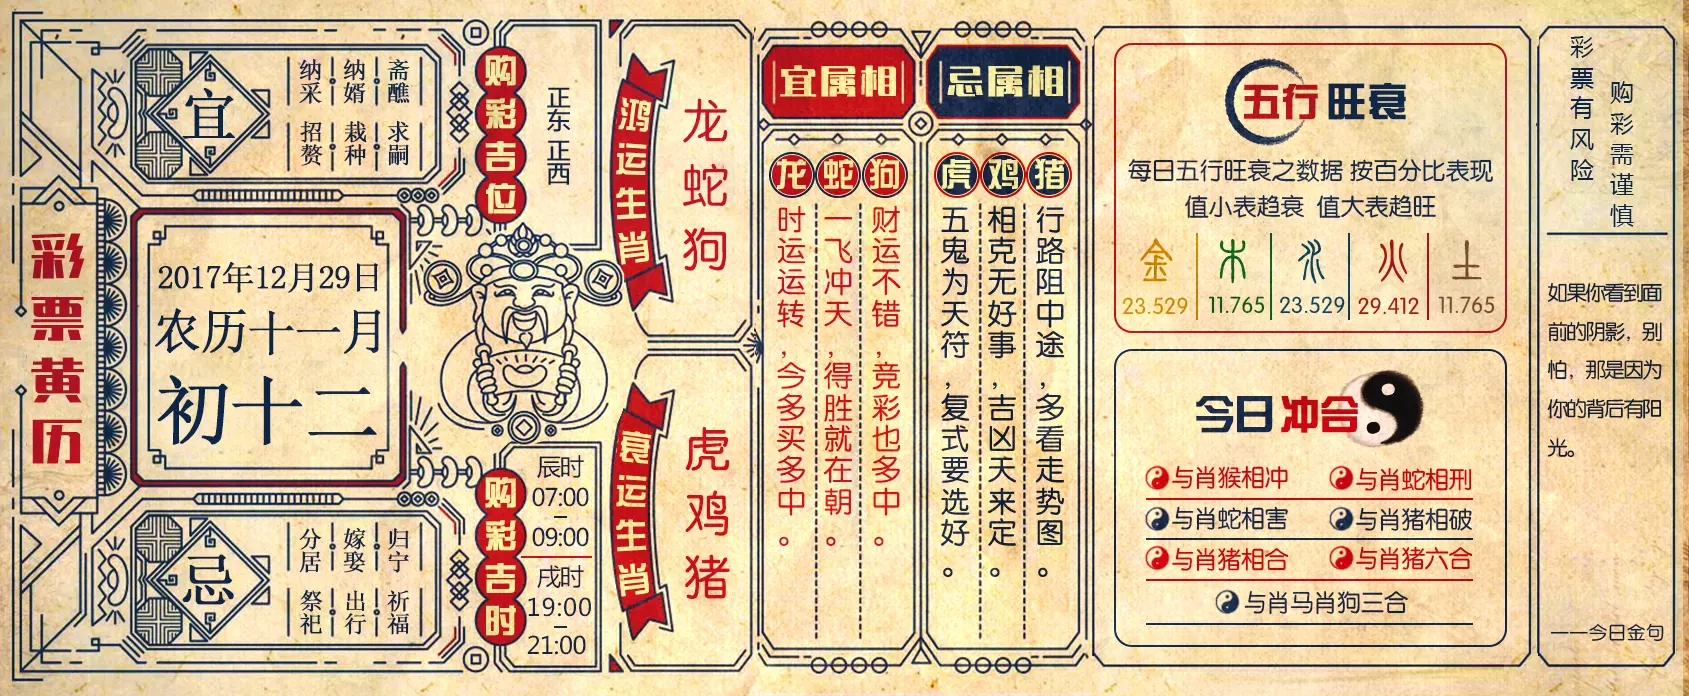 彩票黄历
宜
斋醮 求嗣
纳婿 栽种
纳采 招赘
2017年12月29日
农历十一月
初十二
忌
归宁 祈福
嫁娶 出行
分居 祭祀
购彩吉位
正东 正西
购彩吉时
辰时
07:00
–
09:00
戌时
19:00
–
21:00
鸿运生肖
龙
蛇
狗
衰运生肖
虎
鸡
猪
宜属相
龙
时运运转,今多买多中。
蛇
一飞冲天,得胜就在朝。
狗
财运不错,竞彩也多中。
忌属相
虎
五鬼为天符,复式要选好。
鸡
相克无好事,吉凶天来定。
猪
行路阻中途,多看走势图。
五行 旺衰
每日五行旺衰之数据 按百分比表现
值小表趋衰 值大表趋旺
金 木 水 火 土
23.529 11.765 23.529 29.412 11.765
今日 冲合
与肖猴相冲 与肖蛇相刑
与肖蛇相害 与肖猪相破
与肖猪相合 与肖猪六合
与肖马肖狗三合
购彩需谨慎
彩票有风险
如果你看到面
前的阴影，别
怕，那是因为
你的背后有阳
光。
——今日金句